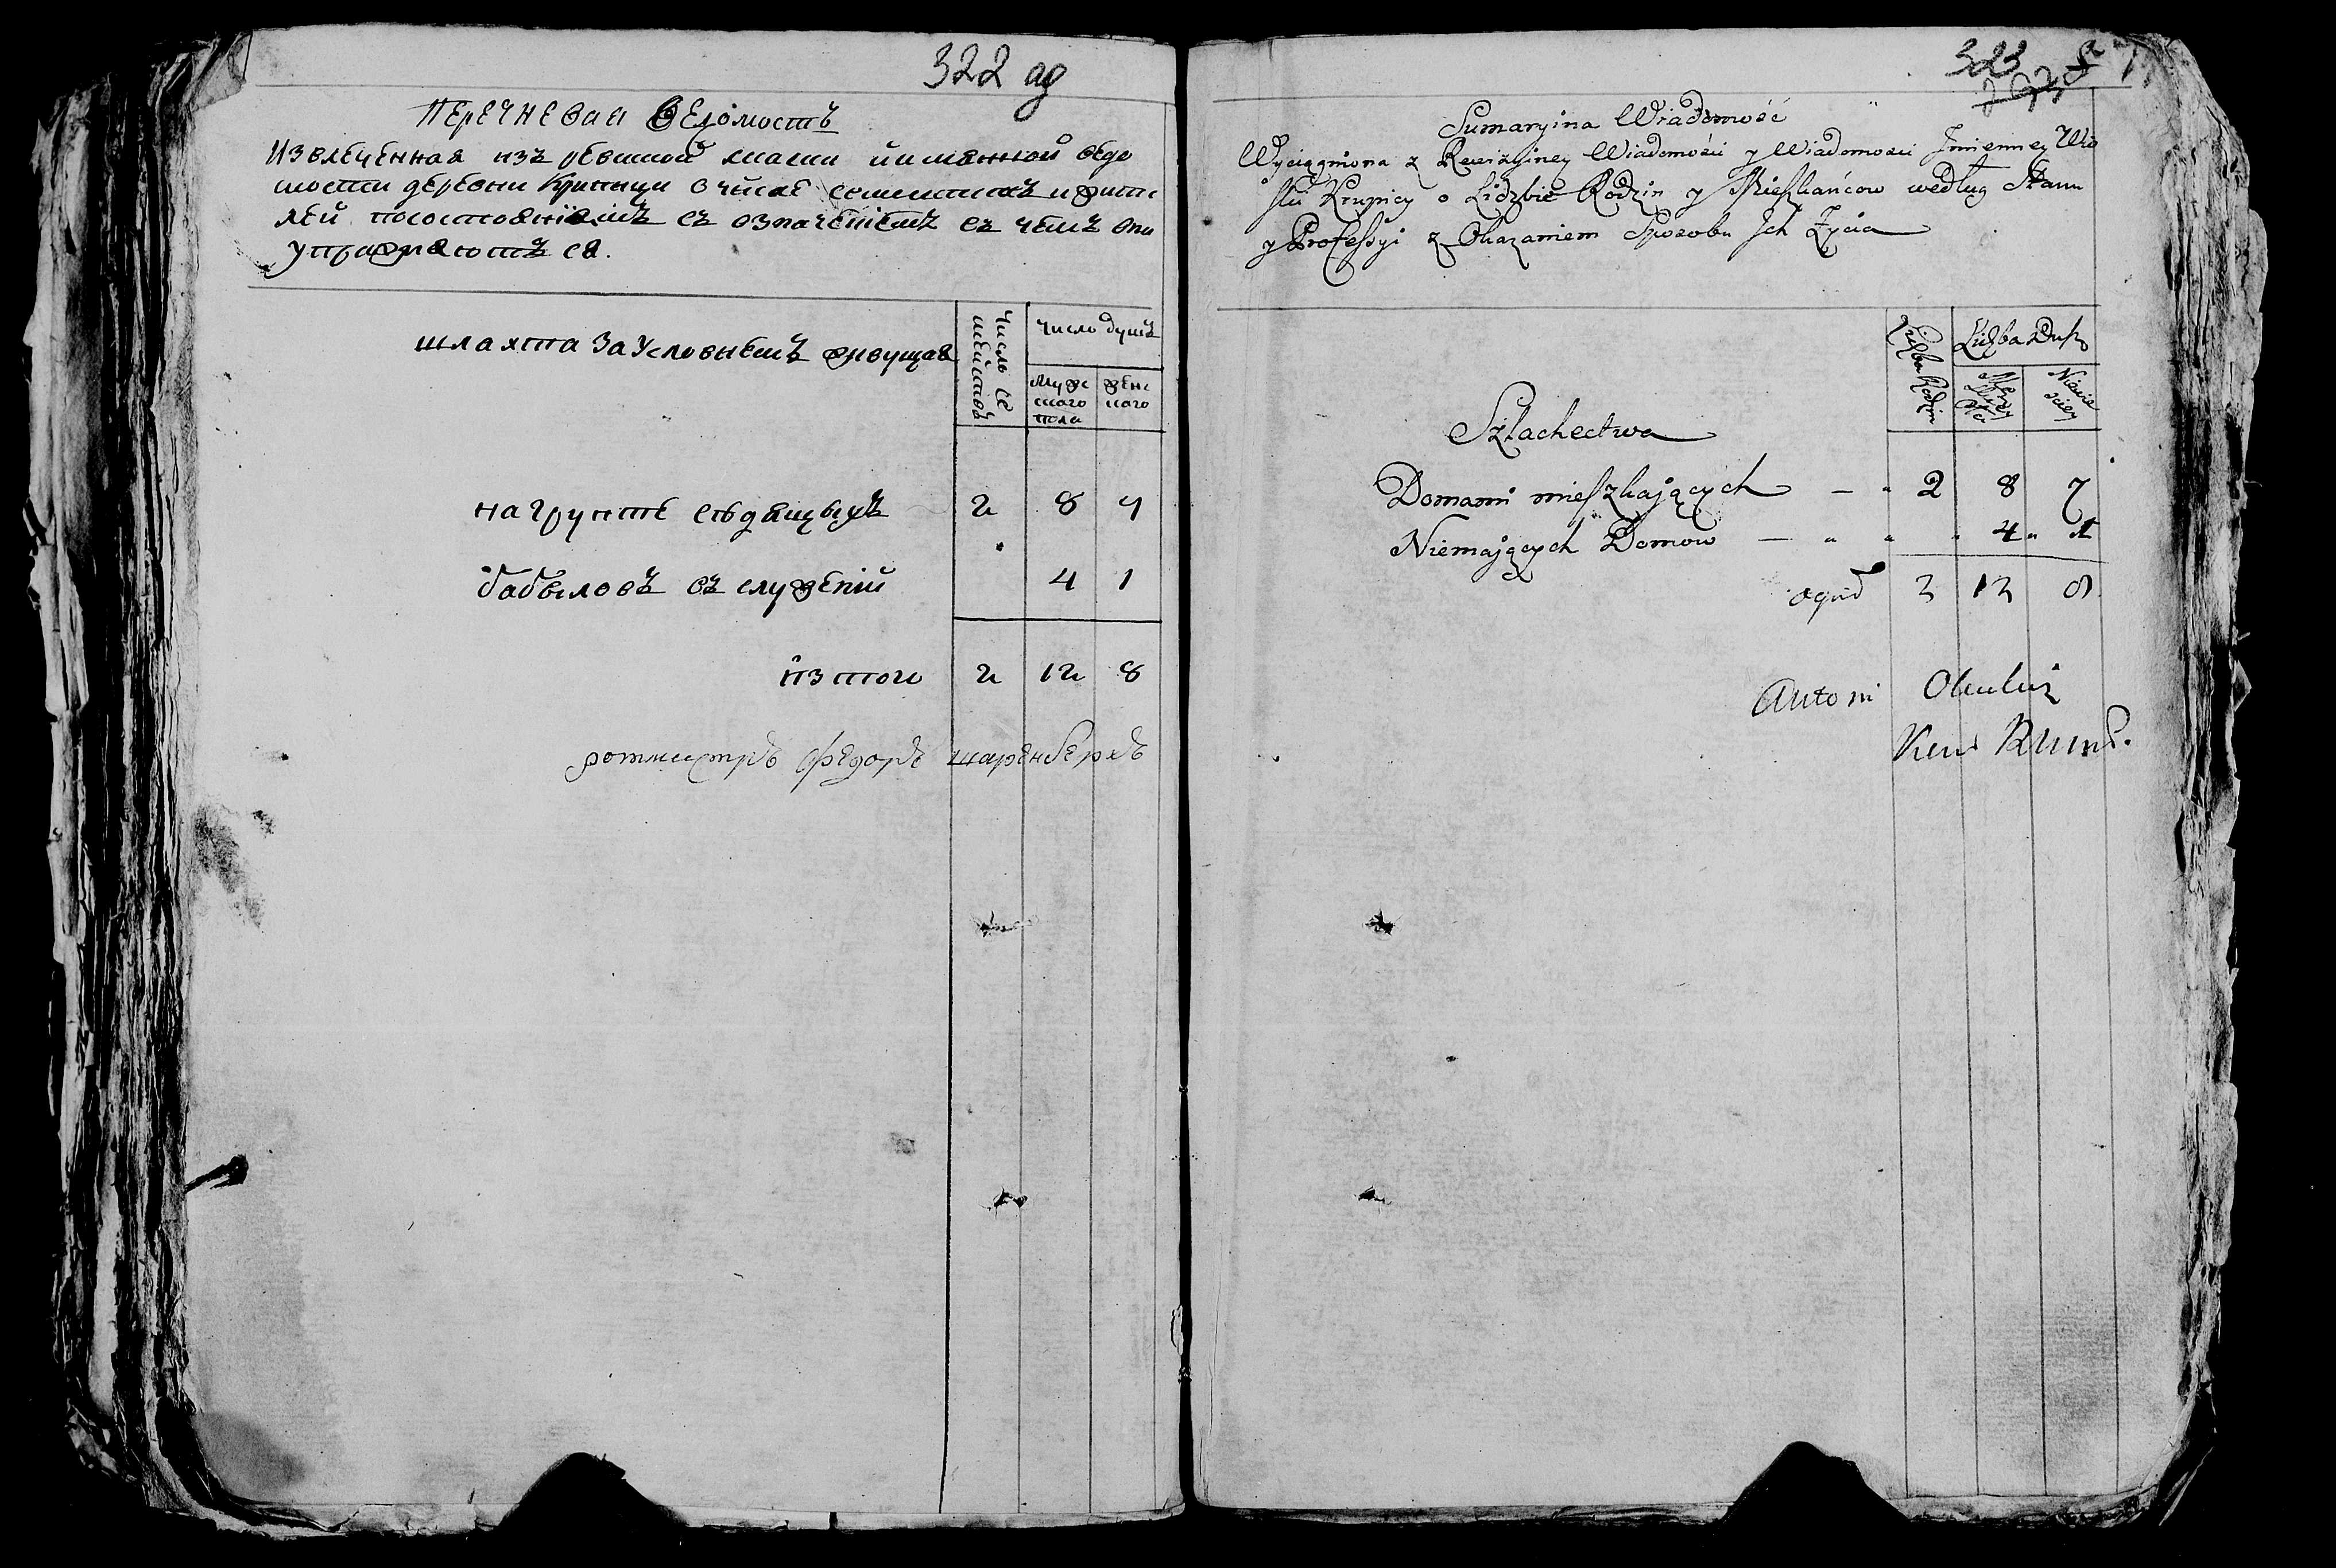 322 ад
Перечневая Ведомость
Извлеченная изъ ревиской скаски и имянной ведо
мости деревни Крипицы о числе семействъ и жите
лей по состояніямъ съ означеніемъ съ чемъ они
упражняютъ ся.
шляхта За Условиемъ живущая
Число се
мействъ
число душъ
мужс
каго
пола
женс
каго
на грунте сѣдящыхъ 2 8 7
бабыловъ въ служеніи 4 1
изтого 2 12 8
ротмистръ федоръ
323
Sumaryina Wiadomość
Wyciągniona z Rewizyiney Wiadomości y Wiadomości Jmienney Wio
ski Krupicy o Lidzbie Rodzin y Mieszkańcow według Stanu
y Professyi z Okazaniem Sposobu Jch Życia
Liczba Rodzin
Liczba Dusz
Męzkiey
Niewie
sciey
Szlachectwa
Domami mieszkających — 2 8 7
Niemających Domow — " " " 4 " 1
oguł 2 12 8
Antoni